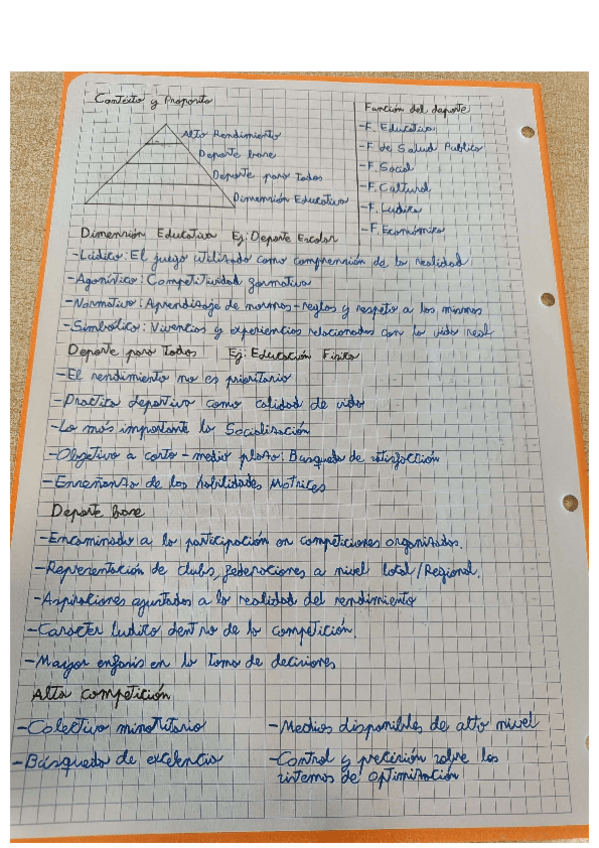 Contexto y Proposito
Alto Rendimiento
Deporte base
Deporte para Todos
Dimensión Educativa
Función del deporte
-F. Educativa
-F de Salud Publica
-F. Social
-F. Cultural
-F. Ludica
-F. Económica
Dimensión Educativa Ej: Deporte Escolar
-Lúdico: El juego utilizado como comprensión de la realidad
-Agonístico: Competitividad formativa
-Normativo: Aprendizaje de normas-reglas y respeto a las mismas
-Simbólico: Vivencias y experiencias relacionadas con la vida real
Deporte para Todos Ej: Educación Física
-El rendimiento no es prioritario
-Practica deportiva como calidad de vida
-Lo más importante la Socialización
-Objetivo a corto-medio plazo: Busqueda de satisfacción
-Enseñanza de las habilidades Motrices
Deporte base
-Encaminado a la participación en competiciones organizadas.
-Representación de clubs, federaciones a nivel local/Regional.
-Aspiraciones ajustadas a la realidad del rendimiento
-Carácter ludico dentro de la competición.
-Mayor enfasis en la toma de decisiones
Alta competición
-Colectivo minoritario
-Búsqueda de excelencia
-Medios disponibles de alto nivel
-Control y precisión sobre los
sistemas de optimización